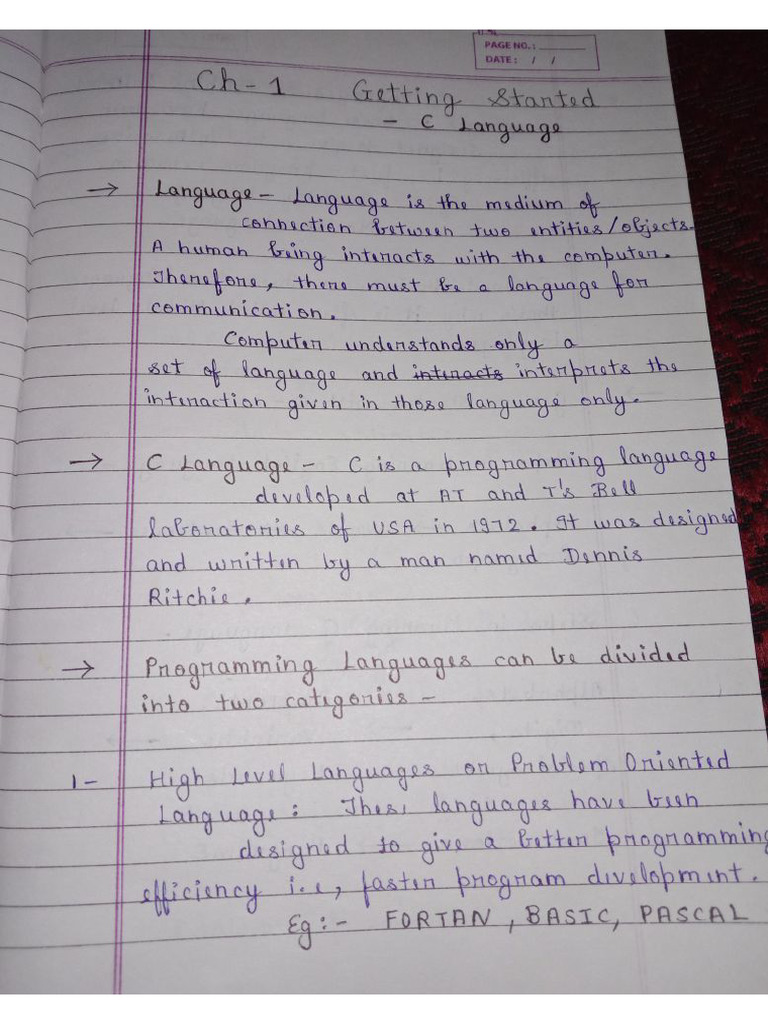 PAGE NO.:
DATE: / /
Ch-1 Getting Started
- C Language
→ Language - Language is the medium of
connection between two entities/objects.
A human being interacts with the computer.
Therefore, there must be a language for
communication.
Computer understands only a
set of language and interacts interprets the
interaction given in those language only.
→ C Language - C is a programming language
developed at AT and T's Bell
laboratories of USA in 1972. It was designed
and written by a man named Dennis
Ritchie.
→ Programming Languages can be divided
into two categories -
1- High Level Languages or Problem Oriented
Language: These languages have been
designed to give a better programming
efficiency i.e, faster program development.
Eg:- FORTAN, BASIC, PASCAL